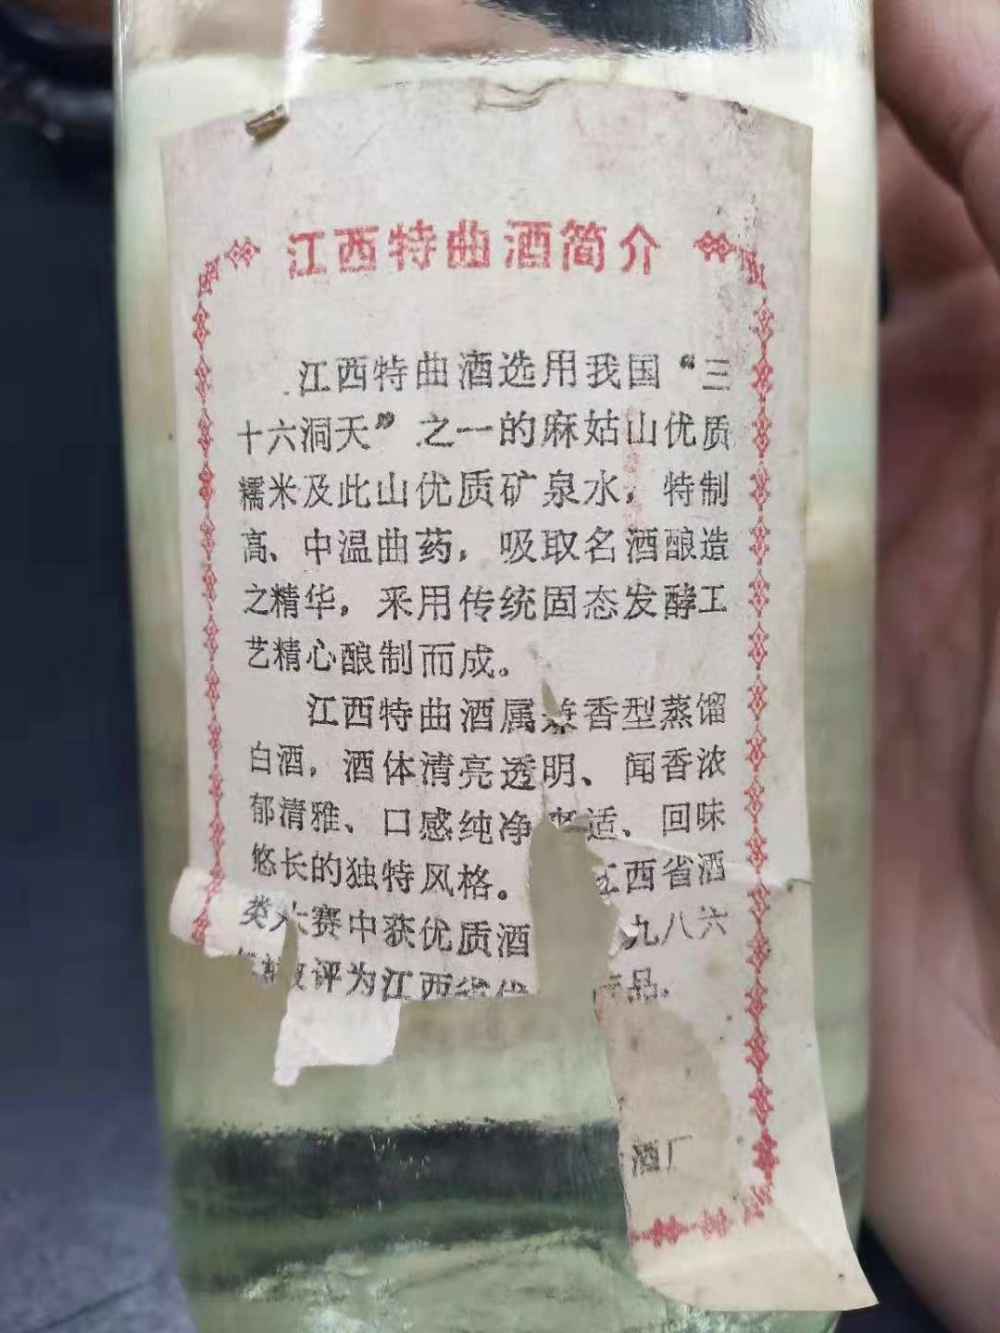 江西特曲酒简介
江西特曲酒选用我国“三
十六洞天”之一的麻姑山优质
糯米及此山优质矿泉水，特制
高、中温曲药，吸取名酒酿造
之精华，采用传统固态发酵工
艺精心酿制而成。
江西特曲酒属兼香型蒸馏
白酒，酒体清亮透明、闻香浓
郁清雅、口感纯净爽适、回味
悠长的独特风格。江西省酒
类大赛中获优质酒 九八六
被评为江西省优 产品.
酒厂